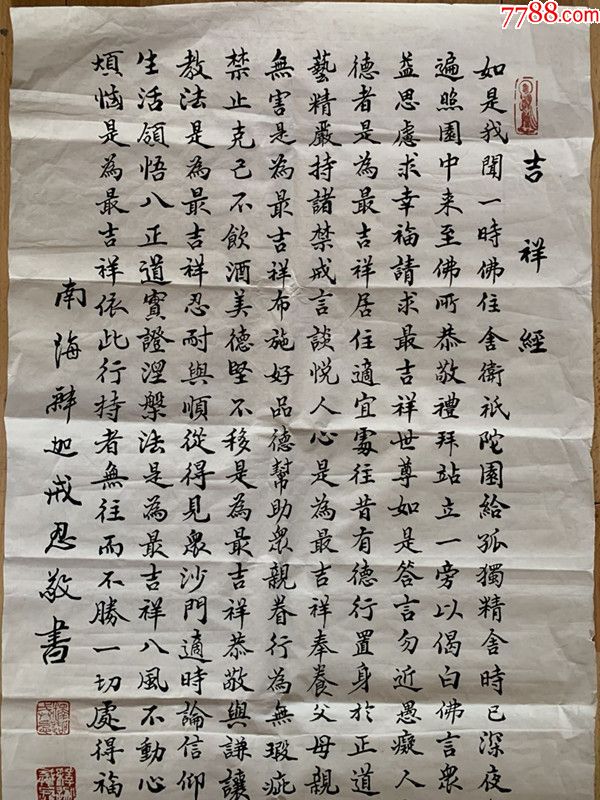 7788.com
吉祥經
如是我聞一時佛住舍衛祇陀園給孤獨精舍時已深夜
遍照園中来至佛所恭敬禮拜站立一旁以偈白佛言衆
益思慮求幸福請求最吉祥世尊如是答言勿近愚癡人
德者是為最吉祥居住適宜處往昔有德行置身於正道
藝精嚴持諸禁戒言談悅人心是為最吉祥奉養父母親
無害是為最吉祥布施好品德幫助衆親眷行為無瑕疵
禁止克己不飲酒美德堅不移是為最吉祥恭敬與謙讓
教法是為最吉祥忍耐與順從得見衆沙門適時論信仰
生活領悟八正道實證涅槃法是為最吉祥八風不動心
煩惱是為最吉祥依此行持者無往而不勝一切處得福
南海釋迦戒忍敬書